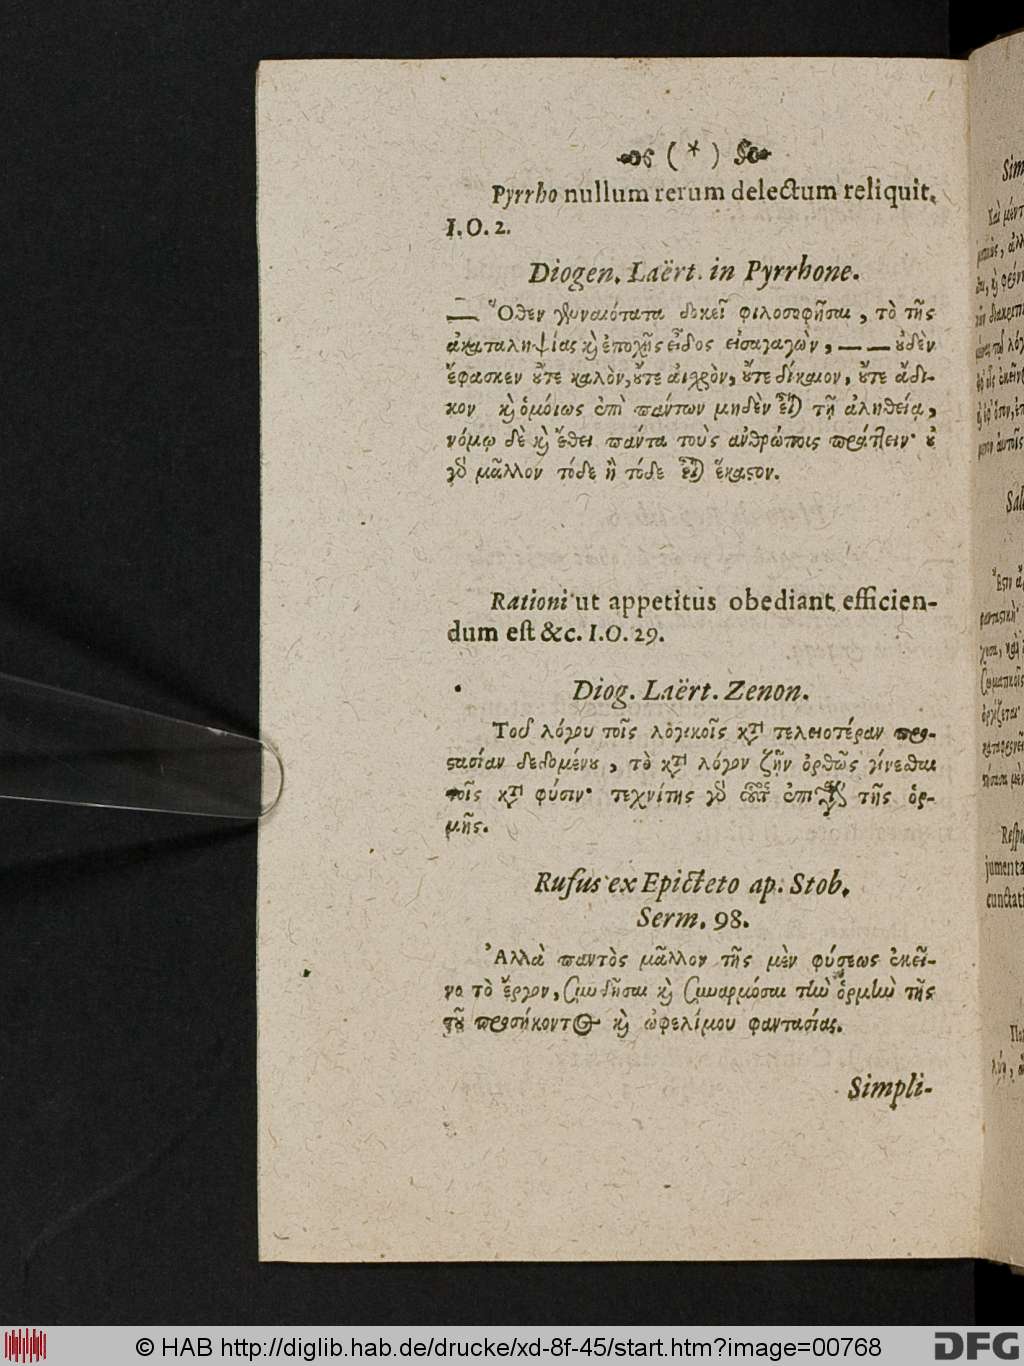 ( * )
Pyrrho nullum rerum delectum reliquit.
I. O. 2.
Diogen. Laërt. in Pyrrhone.
— Ὅθεν γενναιότατα δοκεῖ φιλοσοφῆσαι, τὸ τῆς
ἀκαταληψίας κὶ ἐποχῆς εἶδος εἰσαγαγὼν, — — ȣ̓δὲν
ἔφασκεν ȣ̓́τε καλὸν, ȣ̓́τε αἰσχρὸν, ȣ̓́τε δίκαιον, ȣ̓́τε ἄδι-
κον κὶ ὁμόιως ἐπὶ πάντων μηδὲν εἶναι τῇ ἀληθείᾳ,
νόμῳ δὲ κὶ ἔθει πάντα τοὺς ἀνθρώποις πράττειν· ȣ̓
γὰρ μᾶλλον τόδε ἢ τόδε εἶναι ἕκαϛον.
Rationi ut appetitus obediant efficien-
dum est &c. I. O. 29.
Diog. Laërt. Zenon.
Τοῦ λόγου τοῖς λογικοῖς κατὰ τελειοτέραν προ-
ϛασίαν δεδομένȣ, τὸ κατὰ λόγον ζῆν ὀρθῶς γίνεσθαι
τοῖς κατὰ φύσιν· τεχνίτης γὰρ οὗτος ἐπιγίνεται τῆς ὁρ-
μῆς.
Rufus ex Epicteto ap. Stob.
Serm. 98.
Ἀλλὰ παντὸς μᾶλλον τῆς μὲν φύσεως ἐκεῖ-
νο τὸ ἔργον, συνδῆσαι κὶ συναρμόσαι τὴν ὁρμὴν τῆς
τȣ͂ προσήκοντος κὶ ὠφελίμου φαντασίας.
Simpli-
© HAB http://diglib.hab.de/drucke/xd-8f-45/start.htm?image=00768
DFG